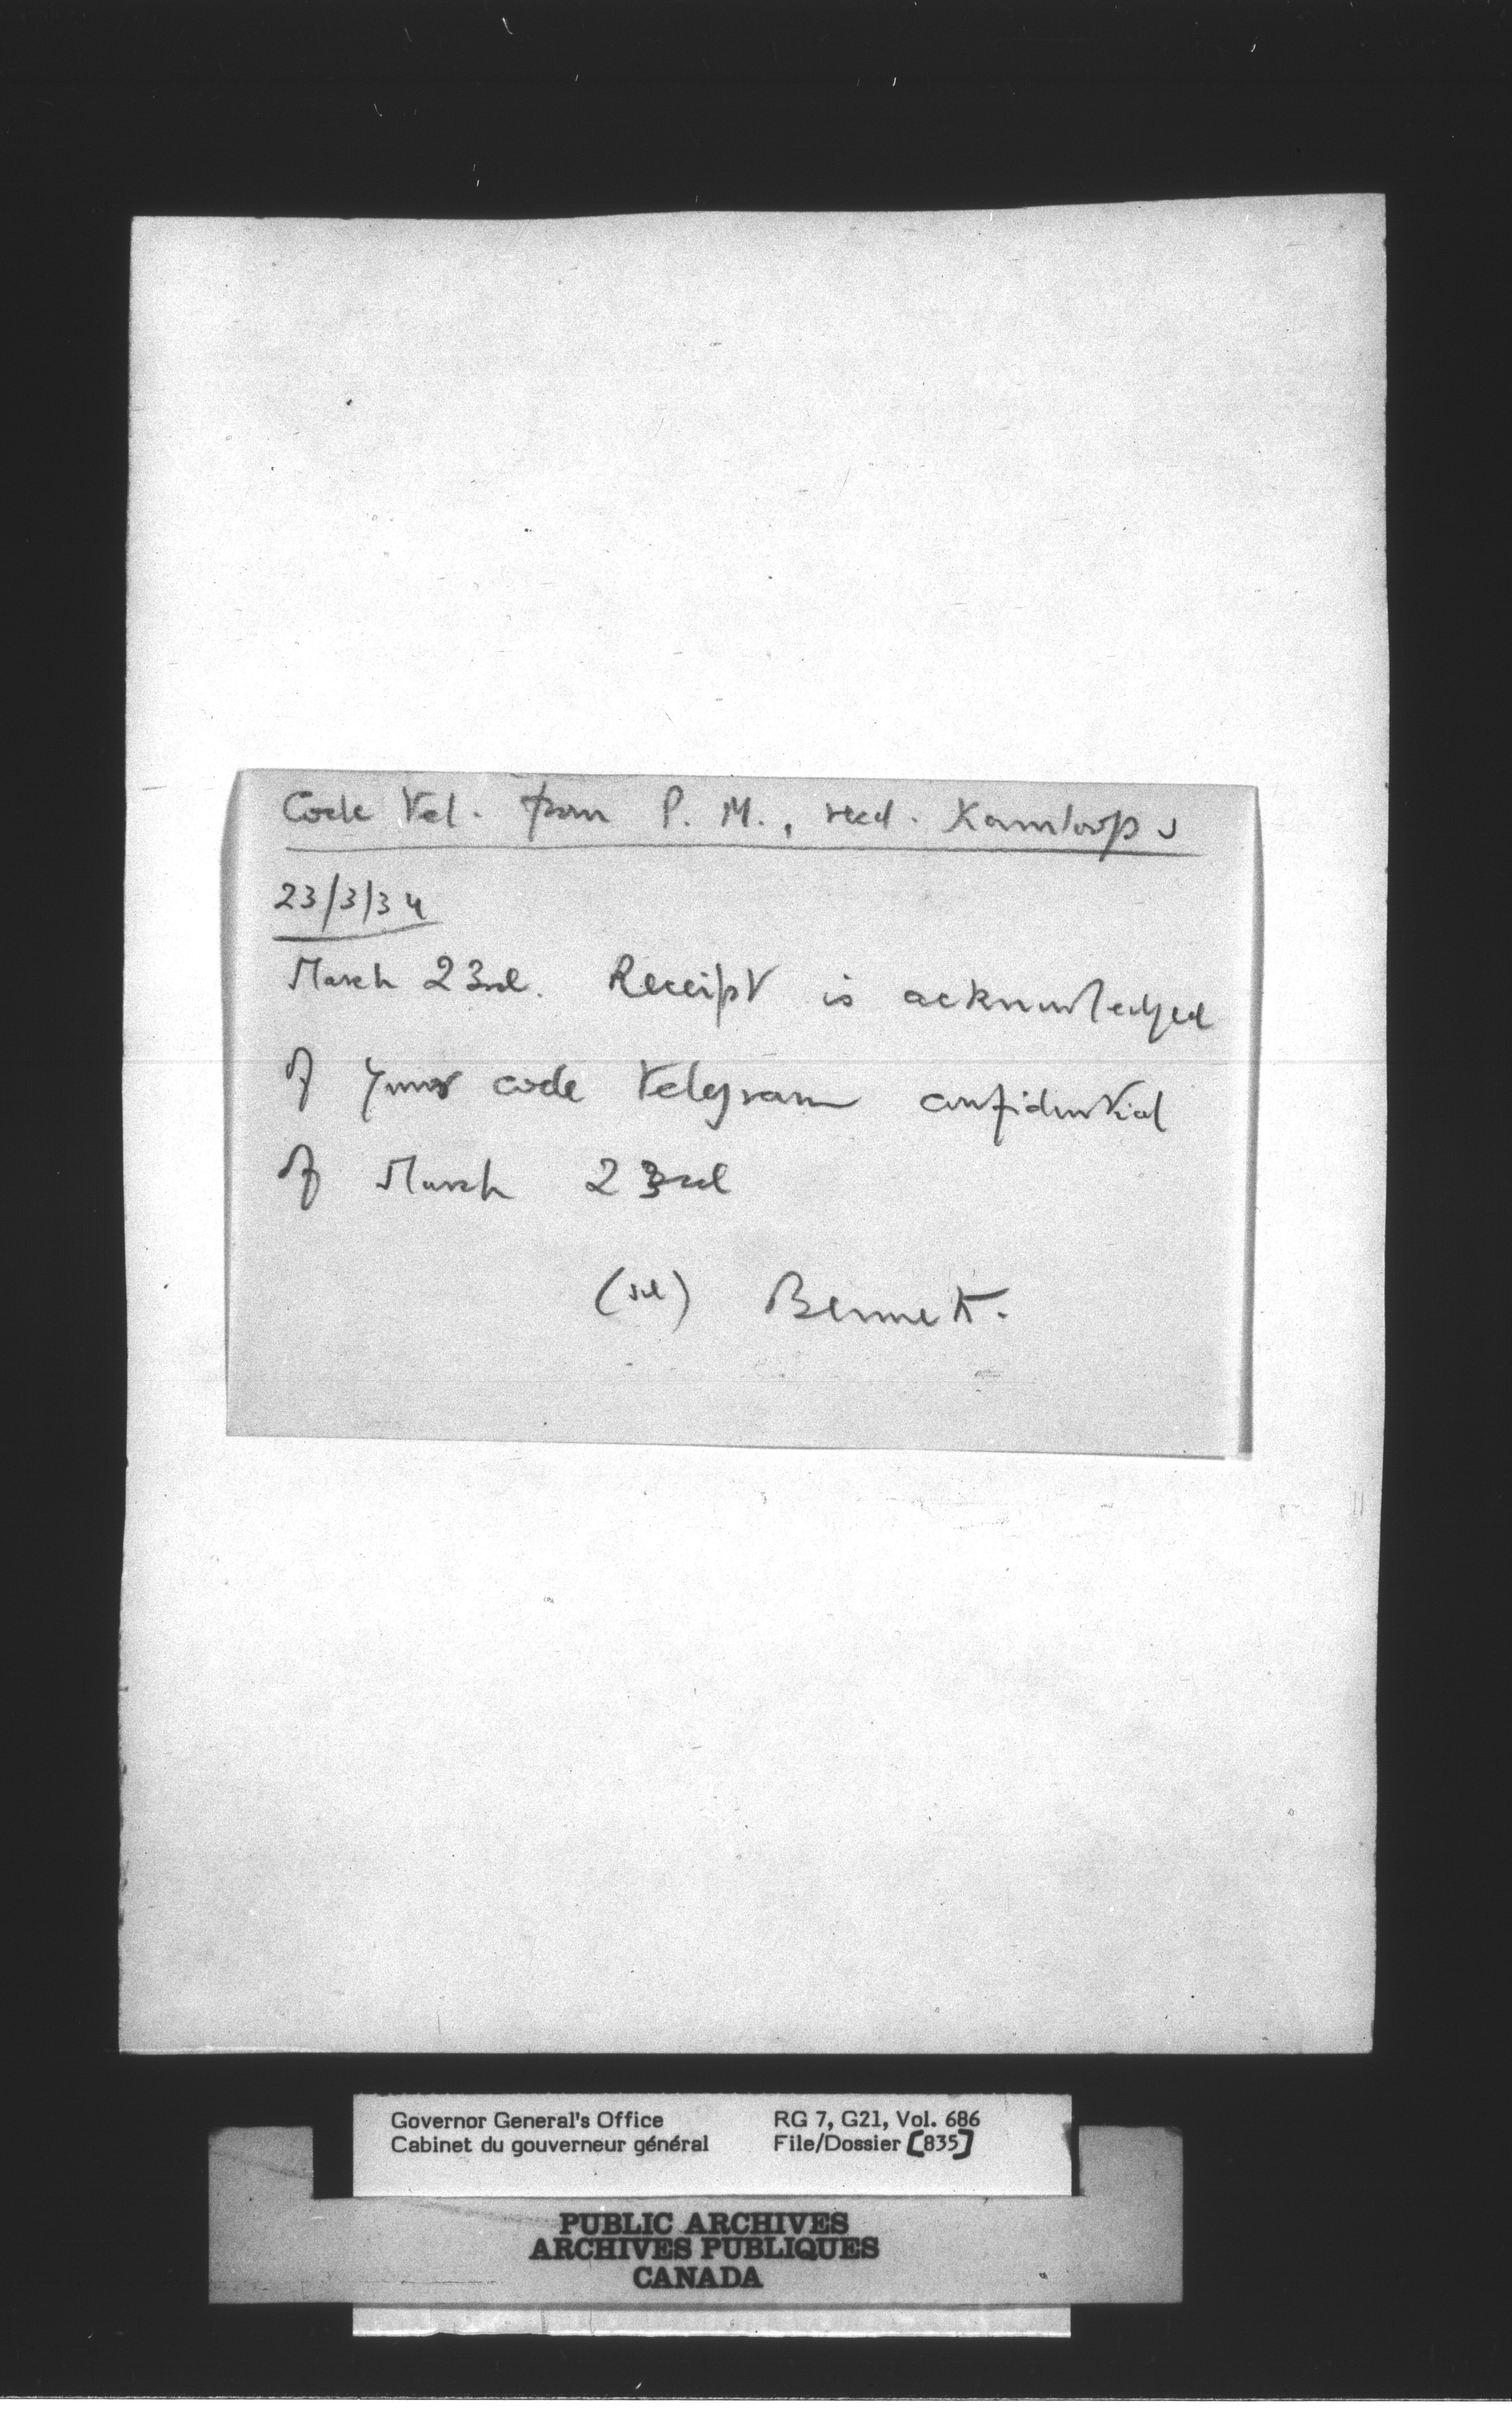 Code tel. from P. M., recd. Kamloops
23/3/34
March 23rd. Receipt is acknowledged
of your code telegram confidential
of March 23rd
(sd) Bennett.
Governor General's Office
Cabinet du gouverneur général
RG 7, G21, Vol. 686
File/Dossier [835]
PUBLIC ARCHIVES
ARCHIVES PUBLIQUES
CANADA